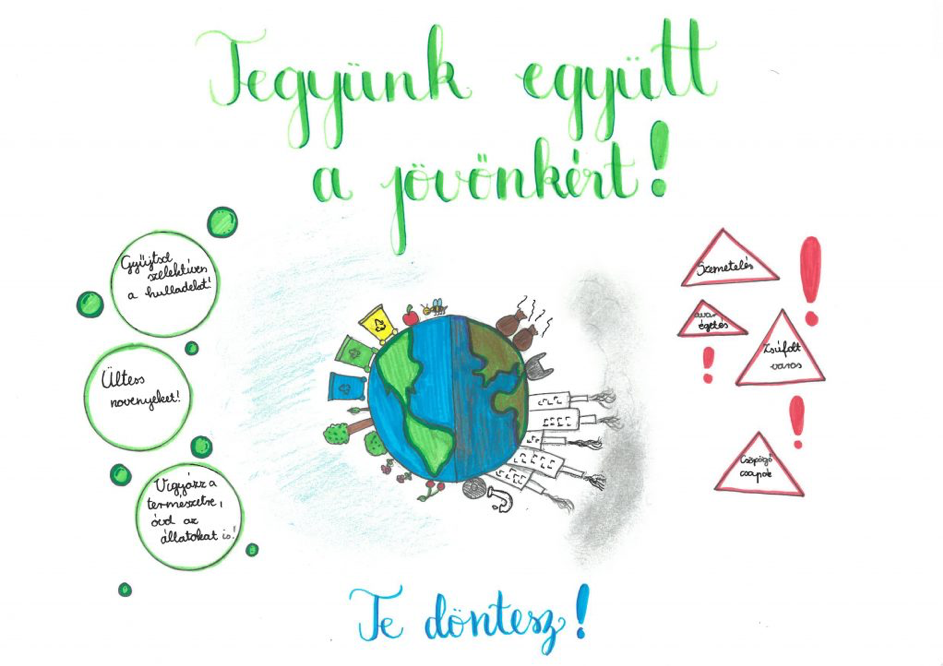 Tegyünk együtt
a jövőnkért!
Gyűjtsd
szelektíven
a hulladékot!
Ültess
növényeket!
Vigyázz a
természetre,
óvd az
állatokat is!
Szemetelés
avar-
égetés
Zsúfolt
város
Csöpögő
csapok
Te döntesz!